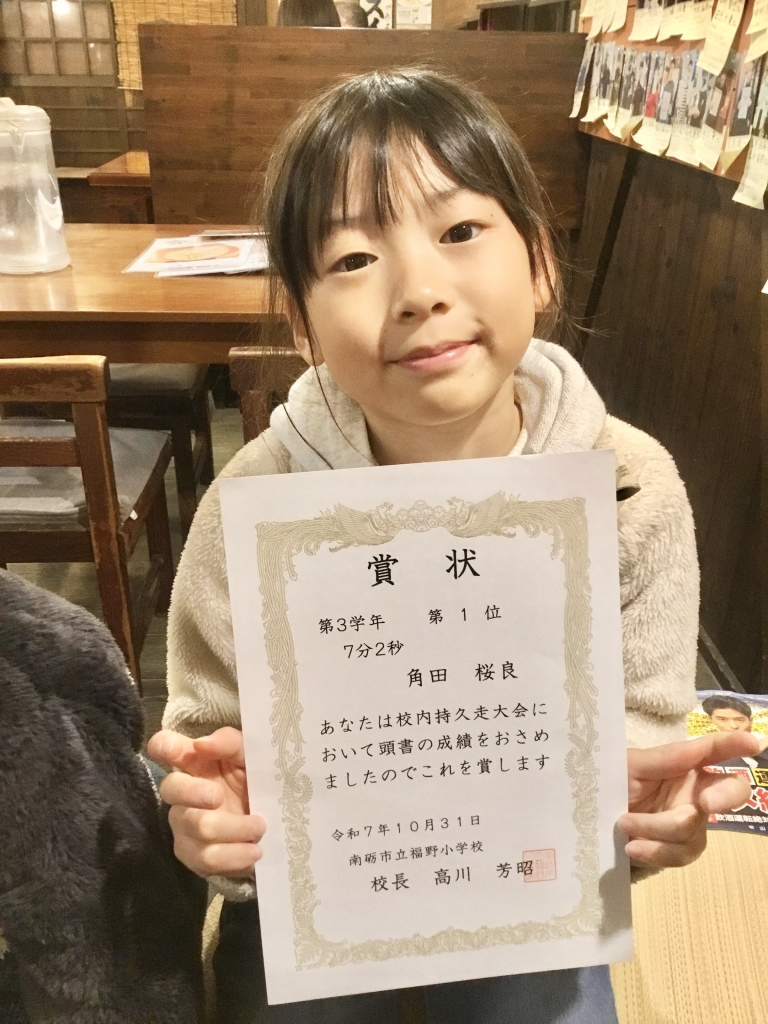 賞 状
第3学年 第 1 位
7分2秒
角田 桜良
あなたは校内持久走大会に
おいて頭書の成績をおさめ
ましたのでこれを賞します
令和7年10月31日
南砺市立福野小学校
校長 高川 芳昭